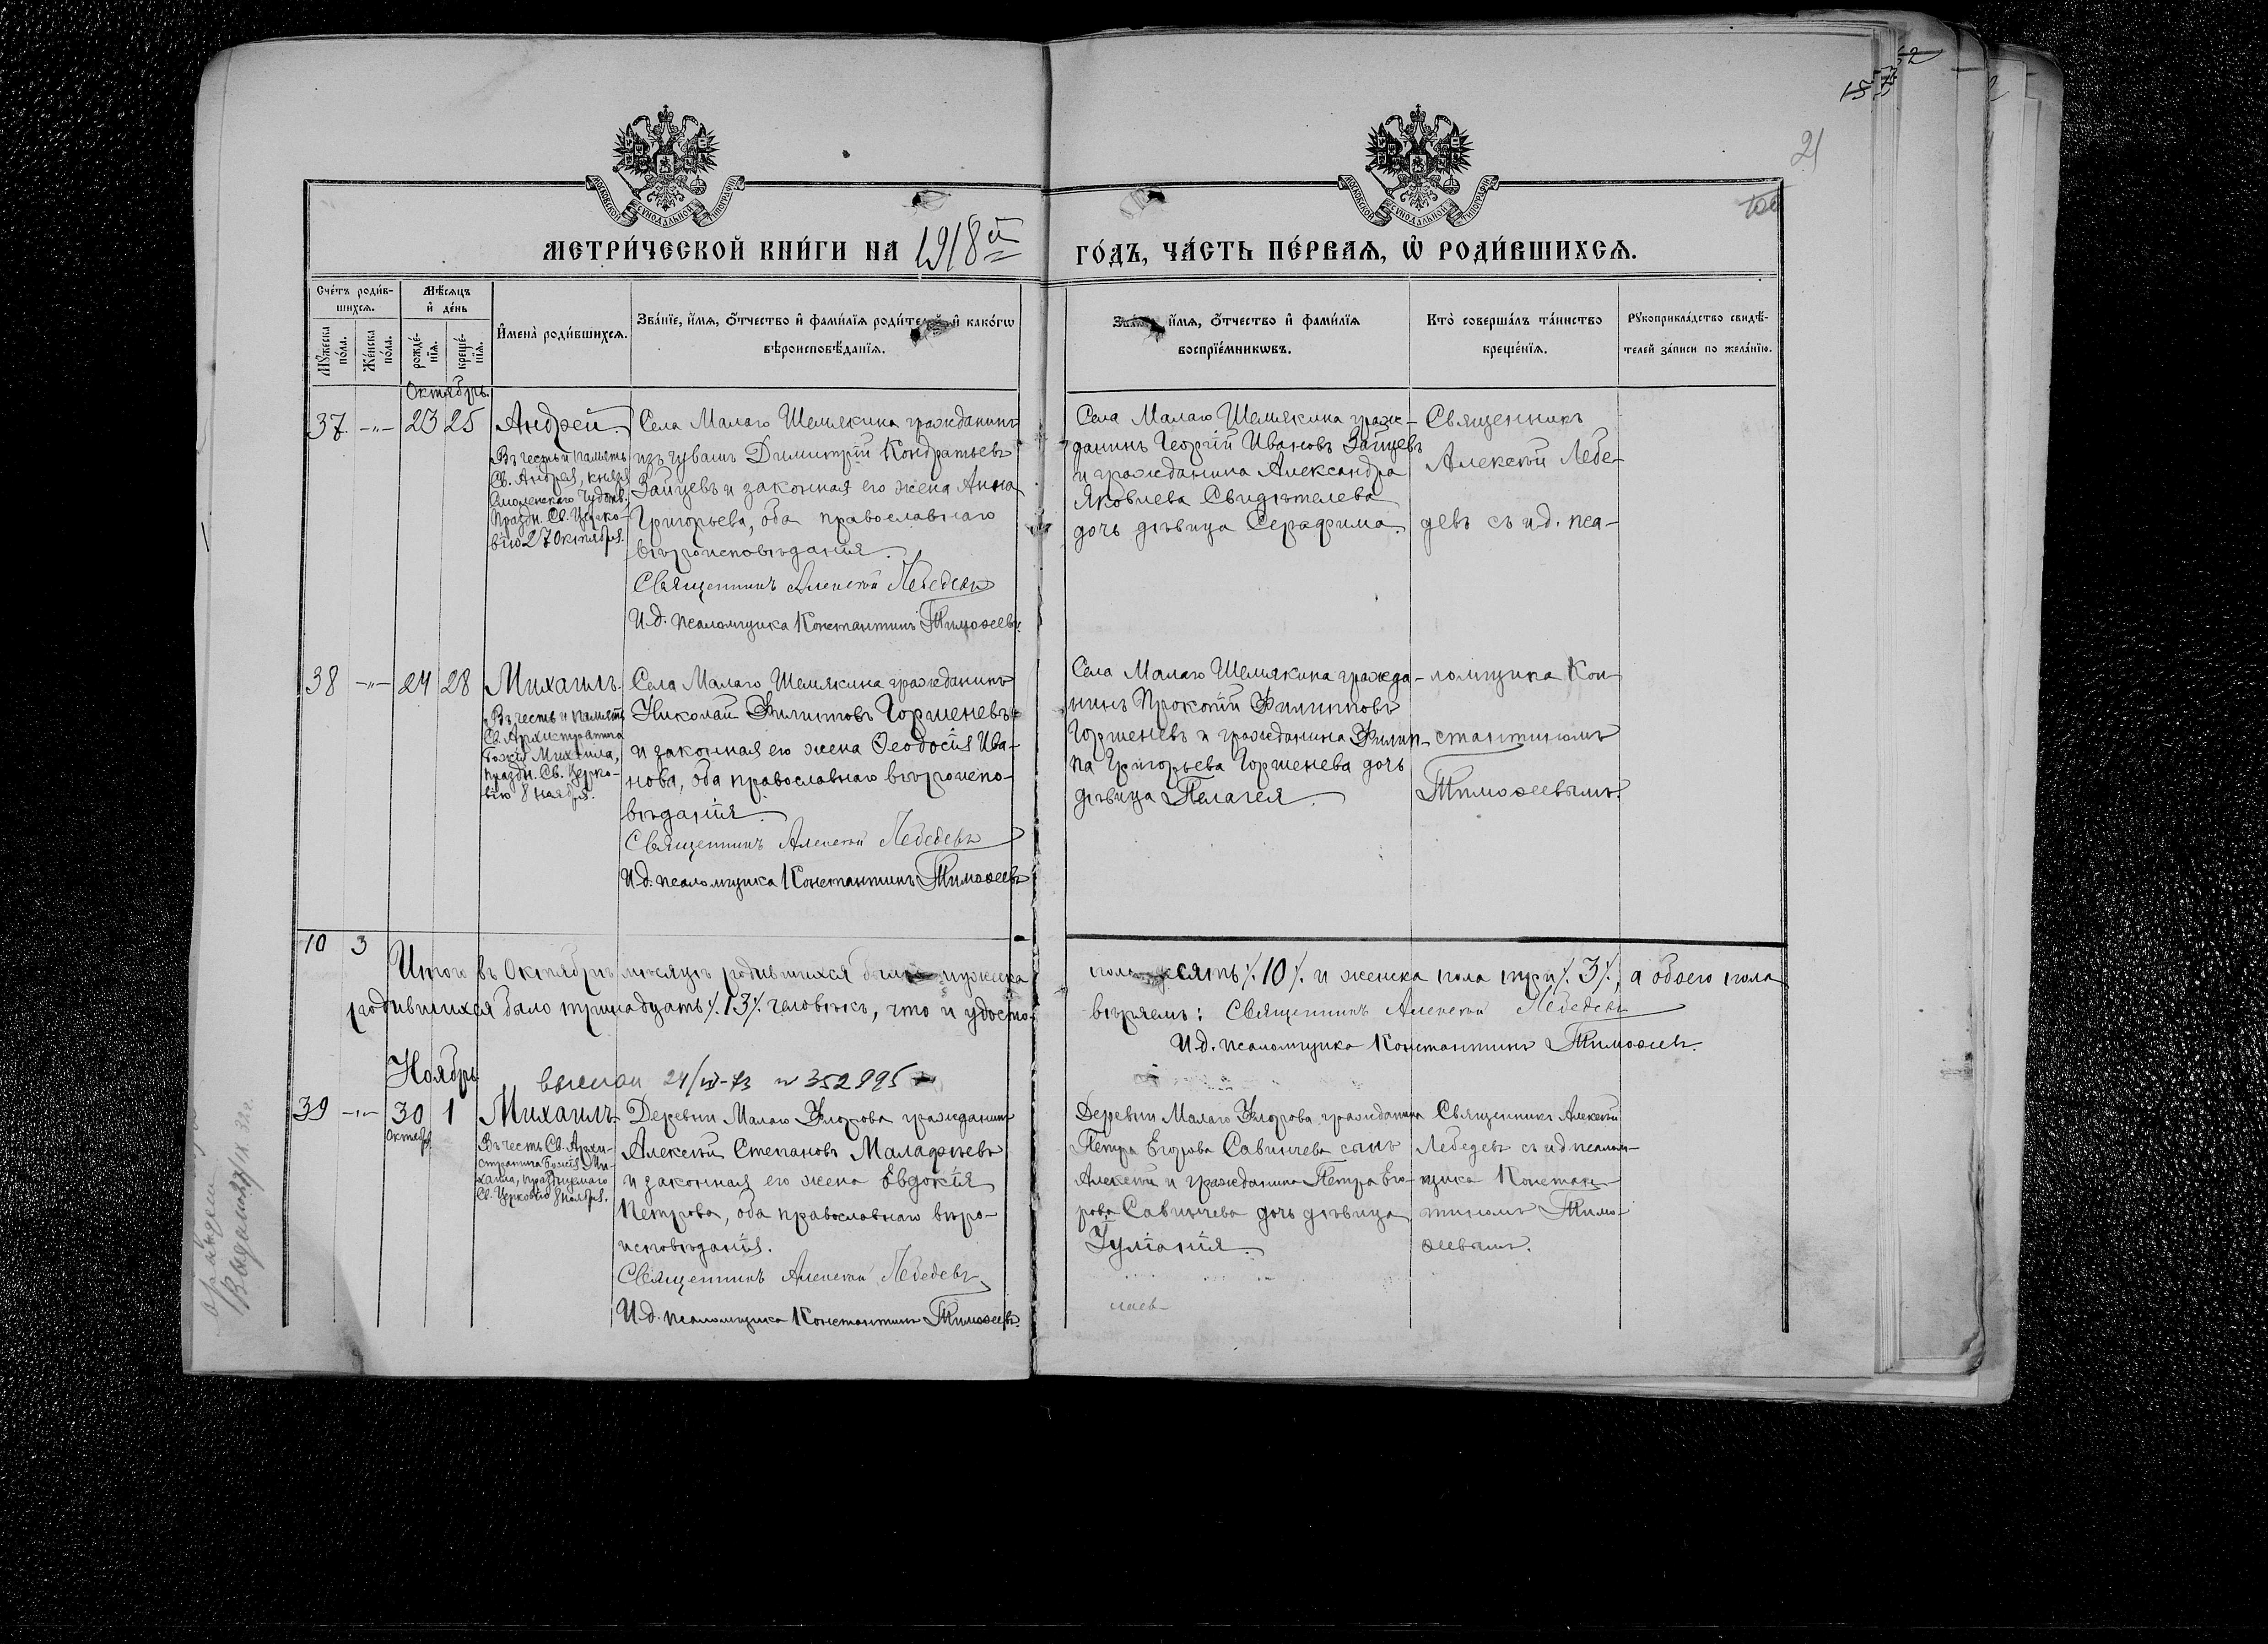 21
МОСКОВСКОЙ СѴНОДАЛЬНОЙ ТИПОГРАФІИ
МОСКОВСКОЙ СѴНОДАЛЬНОЙ ТИПОГРАФІИ
МЕТРИ́ЧЕСКОЙ КНИ́ГИ НА 1918й ГО́ДЪ, ЧА́СТЬ ПЕ́РВАѦ, Ѡ҆ РОДИ́ВШИХСѦ.
Сче́тъ роди́в-
шихсѧ.
Мѣ́сѧцъ
и҆ де́нь
Мꙋ́жеска по́ла.
Же́нска по́ла.
рожде́-
нїѧ.
креще́-
нїѧ.
И҆мена̀ роди́вшихсѧ.
Зва́нїе, и҆́мѧ, ѻ҆́тчество и҆ фами́лїѧ роди́телей и҆ како́гѡ
вѣроисповѣ́данїѧ.
Зва́нїе, и҆́мѧ, ѻ҆́тчество и҆ фами́лїѧ
воспрїе́мникѡвъ.
Кто̀ соверша́лъ та́инство
креще́нїѧ.
Рꙋкоприкла́дство свидѣ́-
телей за́писи по жела́нїю.
Октябрь.
37 -"- 23 25 Андрей.
Въ честь и память
Св. Андрея, князя
Смоленскаго Чудотв.
Праздн. Св. Церко-
вію 27 Октября.
Села Малаго Шемякина гражданинъ
изъ чувашъ Димитрій Кондратьевъ
Зайцевъ и законная его жена Анна
Григорьева, оба православнаго
вѣроисповѣданія.
Священникъ Алексѣй Лебедевъ
И.д. псаломщика Константинъ Тимоѳеевъ.
Села Малаго Шемякина граж-
данинъ Георгій Ивановъ Зайцевъ
и гражданина Александра
Яковлева Свидѣтелева
дочь дѣвица Серафима.
Священникъ
Алексѣй Лебе-
девъ съ и.д. пса-
38 -"- 24 28 Михаилъ.
Въ честь и память
Св. Архистратига
Божія Михаила,
праздн. Св. Церко-
вію 8 ноября.
Села Малаго Шемякина гражданинъ
Николай Филипповъ Горшеневъ
и законная его жена Ѳеодосія Ива-
нова, оба православнаго вѣроиспо-
вѣданія.
Священникъ Алексѣй Лебедевъ
И.д. псаломщика Константинъ Тимоѳеевъ
Села Малаго Шемякина гражда-
нинъ Прокопій Филипповъ
Горшеневъ и гражданина Филип-
па Григорьева Горшенева дочь
дѣвица Пелагея.
ломщика Кон-
стантиномъ
Тимоѳеевымъ.
10 3
Итого въ Октябрѣ мѣсяцѣ родившихся было мужска пола десять ٪10٪ и женска пола три ٪3٪, а обоего пола
родившихся было тринадцать ٪13٪ человѣкъ, что и удосто-
вѣряемъ: Священникъ Алексѣй Лебедевъ
И.д. псаломщика Константинъ Тимоѳеевъ.
Ноябрь
39 -"- 30 1 Михаилъ.
Октября
Въ честь Св. Архи-
стратига Божія Ми-
хаила, празднуемаго
Св. Церковію 8 ноября.
Деревни Малаго Фролова гражданинъ
Алексѣй Степановъ Малафѣевъ
и законная его жена Евдокія
Петрова, оба православнаго вѣро-
исповѣданія.
Священникъ Алексѣй Лебедевъ
И.д. псаломщика Константинъ Тимоѳеевъ.
Деревни Малаго Фролова гражданина
Петра Егорова Савинчева сынъ
Алексѣй и гражданина Петра Его-
рова Савинчева дочь дѣвица
Іуліанія.
Священникъ Алексѣй
Лебедевъ съ и.д. псалом-
щика Констан-
тиномъ Тимо-
ѳеевымъ.